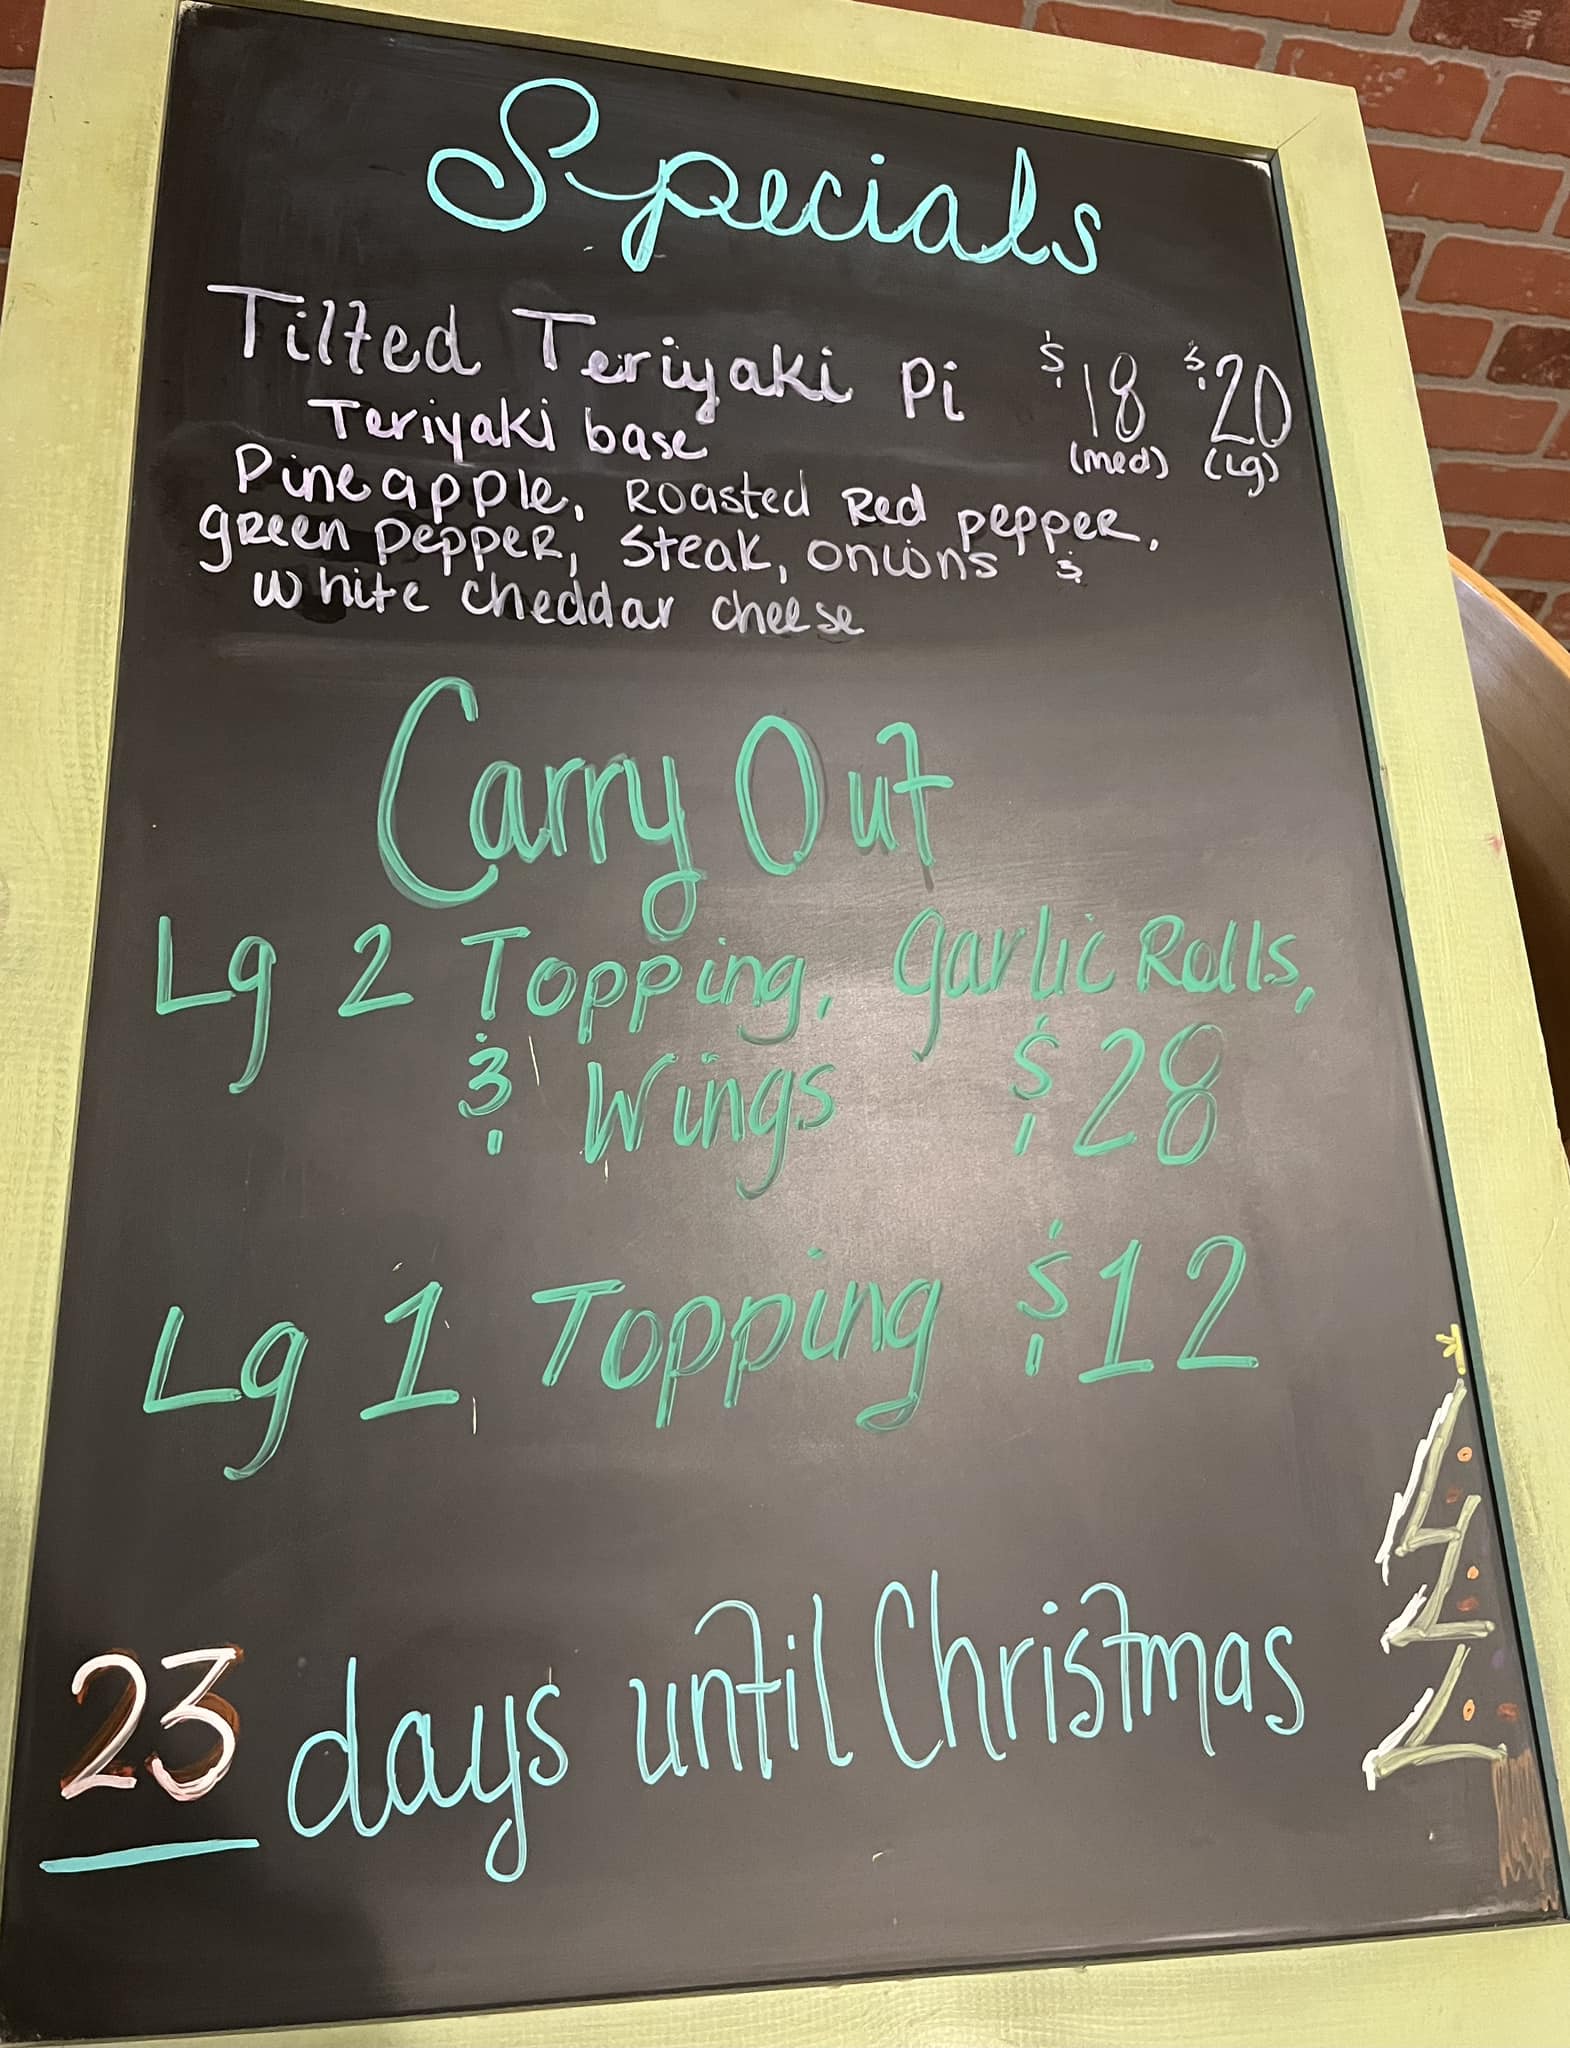 Specials
Tilted Teriyaki Pi $18 $20
(med) (Lg)
Teriyaki base
Pineapple, Roasted Red pepper,
green pepper, Steak, onions &
white cheddar cheese
Carry Out
Lg 2 Topping, Garlic Rolls,
& Wings $28
Lg 1 Topping $12
23 days until Christmas